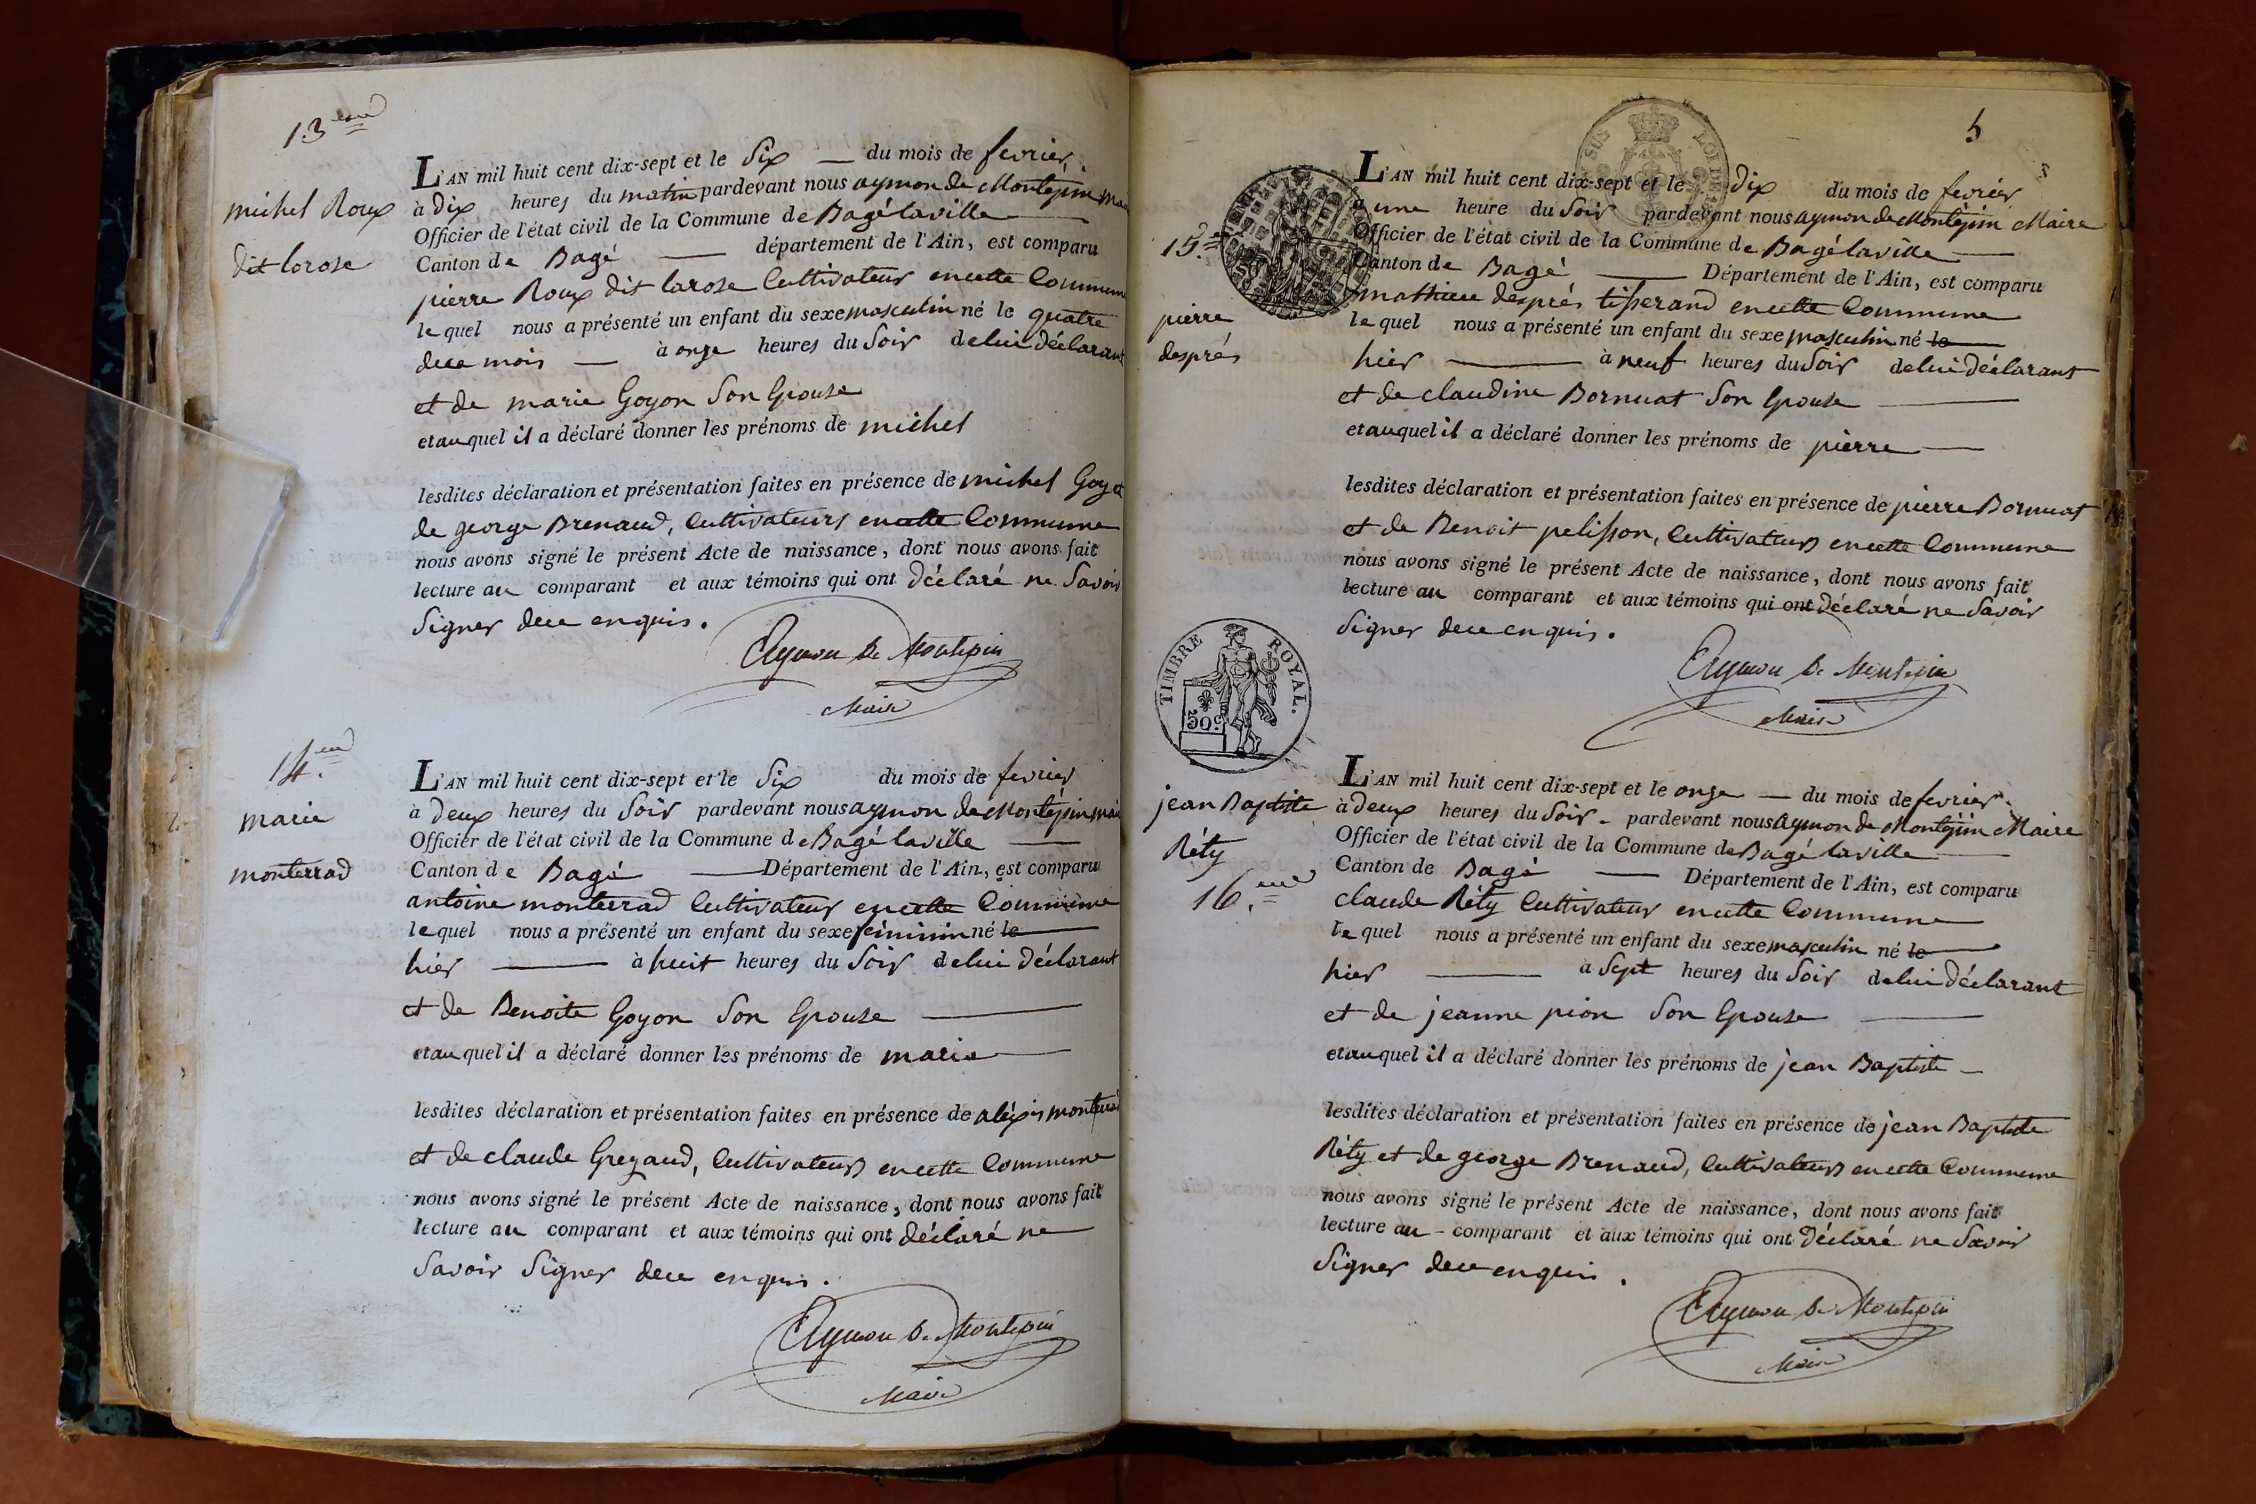 13eme
michel Roux
dit larose
L'AN mil huit cent dix-sept et le Six du mois de fevrier
à dix heures du matin pardevant nous aymon de Montépin Mai
Officier de l'état civil de la Commune de Bagé laville
Canton de Bagé département de l'Ain, est comparu
pierre Roux dit larose Cultivateur en cette Commune
le quel nous a présenté un enfant du sexe masculin né le quatre
de ce mois à onze heures du Soir de lui déclarant
et de marie Goyon Son Epouse
et au quel il a déclaré donner les prénoms de michel
lesdites déclaration et présentation faites en présence de michel Goy et
de george Brenaud, Cultivateurs en cette Commune
nous avons signé le présent Acte de naissance, dont nous avons fait
lecture au comparant et aux témoins qui ont déclaré ne Savoir
Signer de ce enquis.
Aymon de Montepin
Maire
14.eme
marie
monterrad
L'AN mil huit cent dix-sept et le Six du mois de fevrier
à deux heures du Soir pardevant nous aymon de Montépin mai
Officier de l'état civil de la Commune de Bagé laville
Canton de Bagé Département de l'Ain, est comparu
antoine monterrad Cultivateur en cette Commune
le quel nous a présenté un enfant du sexe féminin né le
hier à huit heures du Soir de lui déclarant
et de Benoite Goyon Son Epouse
et au quel il a déclaré donner les prénoms de marie
lesdites déclaration et présentation faites en présence de aléxis monterrad
et de claude Gregaud, Cultivateurs en cette Commune
nous avons signé le présent Acte de naissance, dont nous avons fait
lecture au comparant et aux témoins qui ont déclaré ne
Savoir Signer de ce enquis.
Aymon de Montepin
Maire
5
15.e
pierre
després
L'AN mil huit cent dix-sept et le dix du mois de fevrier
à une heure du Soir pardevant nous aymon de Montépin Maire
Officier de l'état civil de la Commune de Bagé laville
Canton de Bagé Département de l'Ain, est comparu
mathieu després tisserand en cette Commune
le quel nous a présenté un enfant du sexe masculin né le
hier à neuf heures du Soir de lui déclarant
et de claudine Bornuat Son Epouse
et au quel il a déclaré donner les prénoms de pierre
lesdites déclaration et présentation faites en présence de pierre Bornuat
et de Benoit pelisson, Cultivateurs en cette Commune
nous avons signé le présent Acte de naissance, dont nous avons fait
lecture au comparant et aux témoins qui ont déclaré ne Savoir
Signer de ce enquis.
Aymon de Montepin
Maire
TIMBRE ROYAL.
50c.
jean Baptiste
Réty
16.eme
L'AN mil huit cent dix-sept et le onze du mois de fevrier
à deux heures du Soir pardevant nous aymon de Montépin Maire
Officier de l'état civil de la Commune de Bagé laville
Canton de Bagé Département de l'Ain, est comparu
claude Réty Cultivateur en cette Commune
le quel nous a présenté un enfant du sexe masculin né le
hier à Sept heures du Soir de lui déclarant
et de jeanne pion Son Epouse
et au quel il a déclaré donner les prénoms de jean Baptiste
lesdites déclaration et présentation faites en présence de jean Baptiste
Réty et de george Brenaud, Cultivateurs en cette Commune
nous avons signé le présent Acte de naissance, dont nous avons fait
lecture au comparant et aux témoins qui ont déclaré ne Savoir
Signer de ce enquis.
Aymon de Montepin
Maire